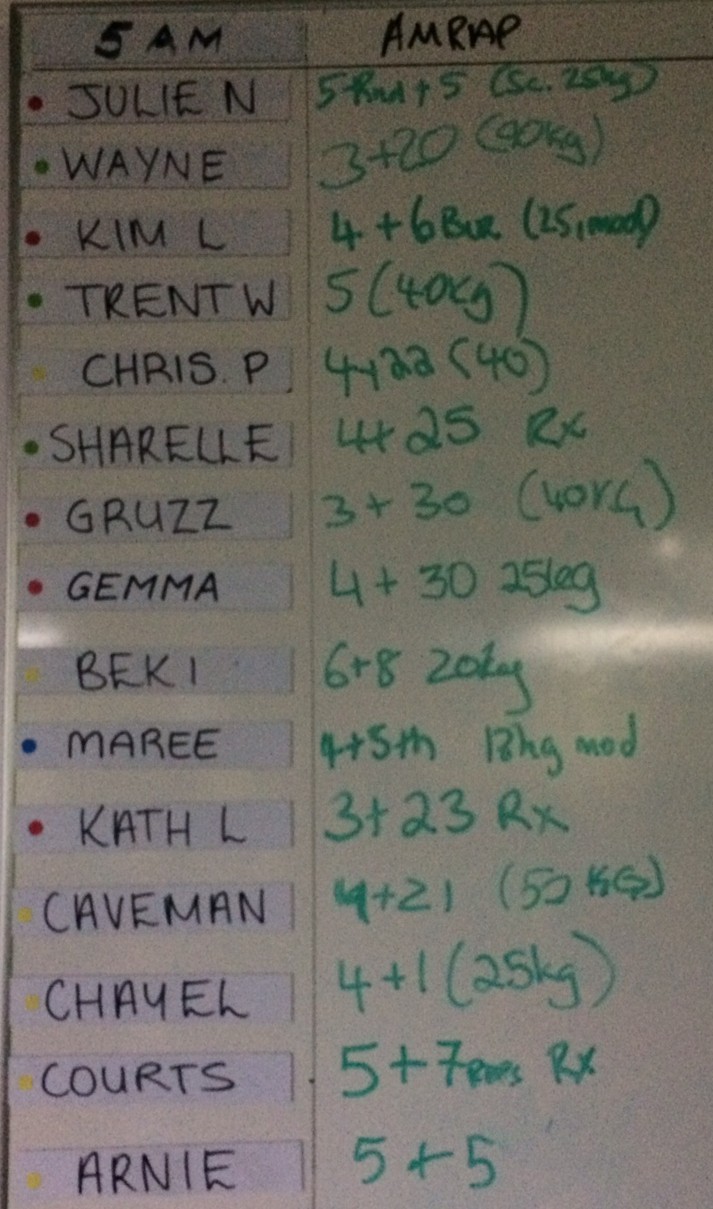 5 AM AMRAP
JULIE N 5 Rnd + 5 (Sc. 25kg)
WAYNE 3+20 (40kg)
KIM L 4 + 6 Bur (25, mod)
TRENT W 5 (40kg)
CHRIS. P 4+22 (40)
SHARELLE 4+ 25 Rx
GRUZZ 3 + 30 (40KG)
GEMMA 4 + 30 25kg
BEK I 6+8 20kg
MAREE 4+5th mod
KATH L 3+23 Rx
CAVEMAN 4+21 (50 KGS)
CHAYEL 4 +1 (25kg)
COURTS 5+7 Rx
ARNIE 5 + 5